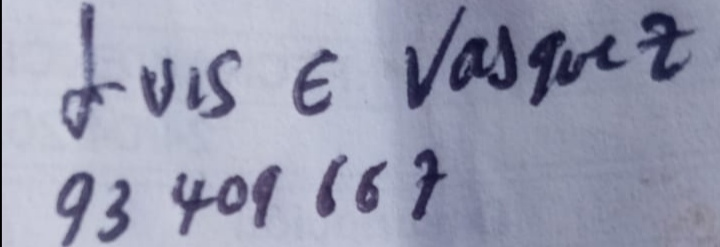 Luis E Vasquez
93 409 667